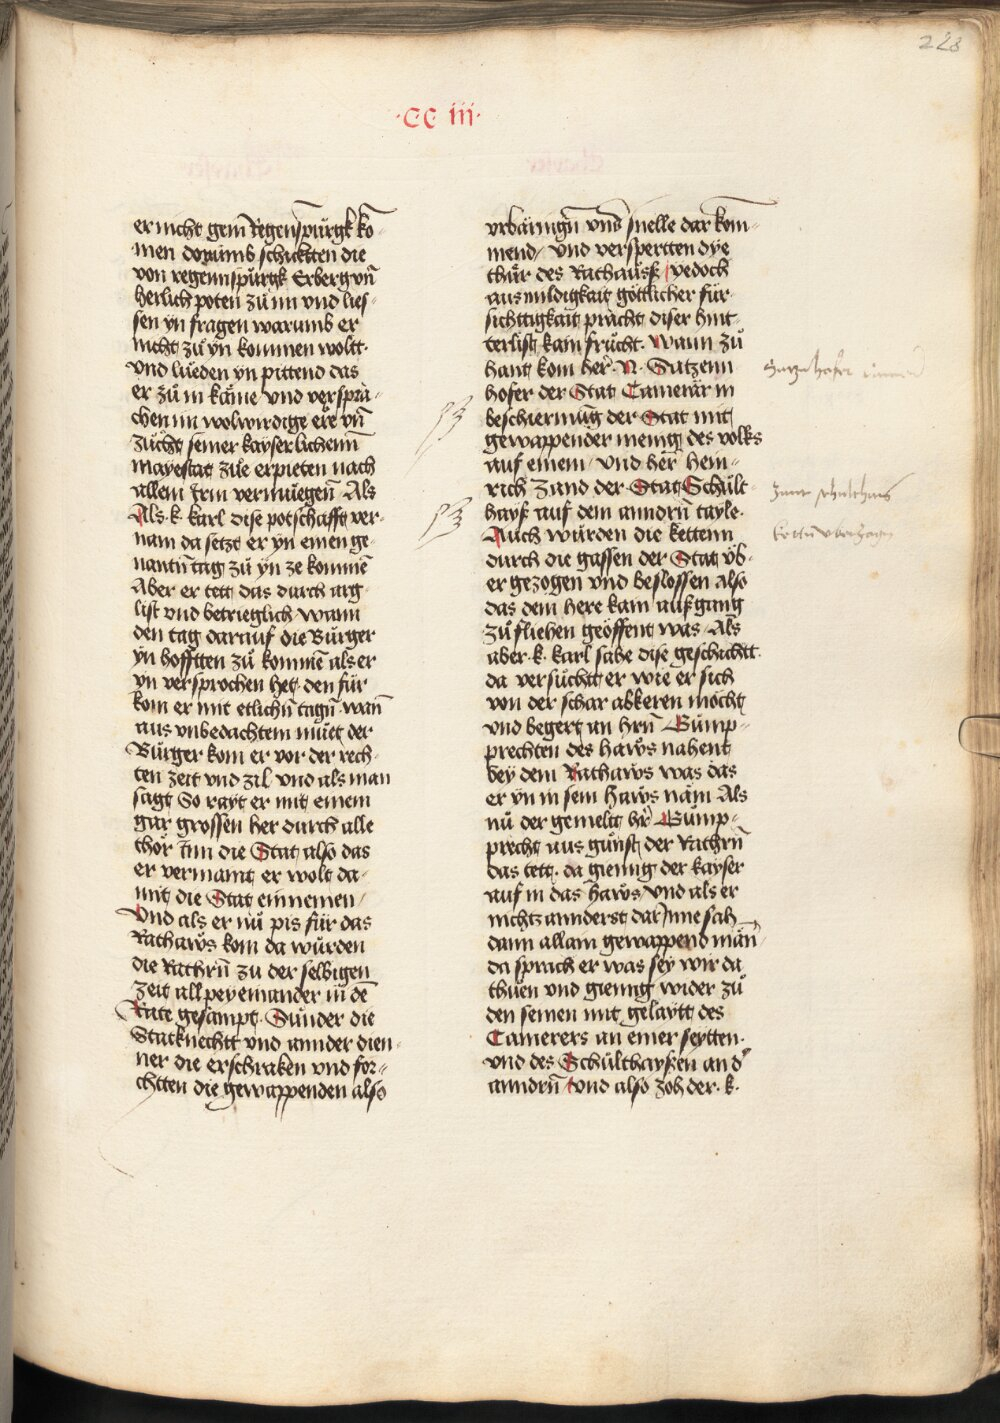 228
·CC iii·
er nicht gem̃ Regenspürgk ko-
men dorumb schicktten die
von regennspürgk Erberg vñ
herlich poten zů im vnd lies-
sen yn fragen warumb er
nicht zů yn kommen woltt·
vnd lueden yn pittend das
er zů in käme vnd versprä-
chen im wolwirdige ere vñ
zůcht seiner kayserlichenn̄
mayestat zůe erpieten nach
allem Irm vermuegen Als
Als·k·karl dise potschafft ver-
nam da setzt er yn einen ge-
nantñ tag zů yn ze kommē
Aber er tett das durch arg-
list vnd betrieglich wann
den tag darauf die Bürger
yn hofftten zů kommē als er
yn versprochen het· den für
kom er mit etlichñ tagñ· wañ
aus vnbedachtem müet der
Bürger kom er vor der rech-
ten zeit vnd zil vnd als man
sagt So rayt er mit einem
gar grossen her durch alle
thör Inn die Stat also das
er vermaint er wolt da-
mit die Stat einnemen
Vnd als er nů pis für das
Rathaws kom da würden
die Rathrñ zu der selbigen
zeit all pey einander in dē
Rate gesampt· Sunder die
Statknechtt vnd annder dien-
ner die erschraken vnd for-
chtten die gewappenden also
vrbäringñ vnd snelle dar kom-
mend/ vnd verspertten dye
thür des Rathaüsß yedoch
aus mildigkait göttlicher für-
sichttigkait pracht diser hint-
terlist kain frücht· wann zů
hant kom her·N· Satzenn
hofer der Stat Camerär in
beschiermüg der Stat mit
gewappender menig des volks
auf einem/ vnd her̃ hein-
rich Zand der Stat Schült-
hayß auf dem anndrñ tayle·
Auch würden die kettenn
durch die gassen der Stat vb-
er gezogen vnd beslossen also
das dem here kain aufgang
zů fliehen geöffent was/ Als
aber·k·karl sahe dise geschichtt·
da versüchtt er wie er sich
von der schar abkeren möcht
vnd begert an hrñ Gump-
prechten des haws nahent
bey dem Rathaws was das
er yn in sein haws näm Als
nů der gemelt hr̃ Gump-
precht aus günst der Rathrñ
das tett· da gieng der kayser
auf in das haws/ vnd als er
nichtz annderst dar Inne sah
dann allain gewappend män̄
da sprach er was sey wir da
thuen vnd gieng wider zů
den seinen mit gelaytt des
Camerers an einer seytten·
vnd des Schülthayßen an d̕
anndrñ vnd also zoh der·k·
Zant schulthais